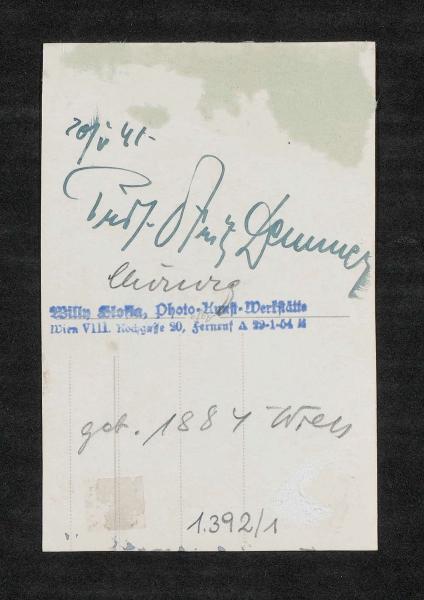 20/V 41-
Prof. Fritz Demmer
Chirurg
Willy Kloska, Photo-Kunst-Werkstätte
Wien VIII. Kochgasse 20, Fernruf A 29-1-64 M
geb. 1884 Wien
1.392/1